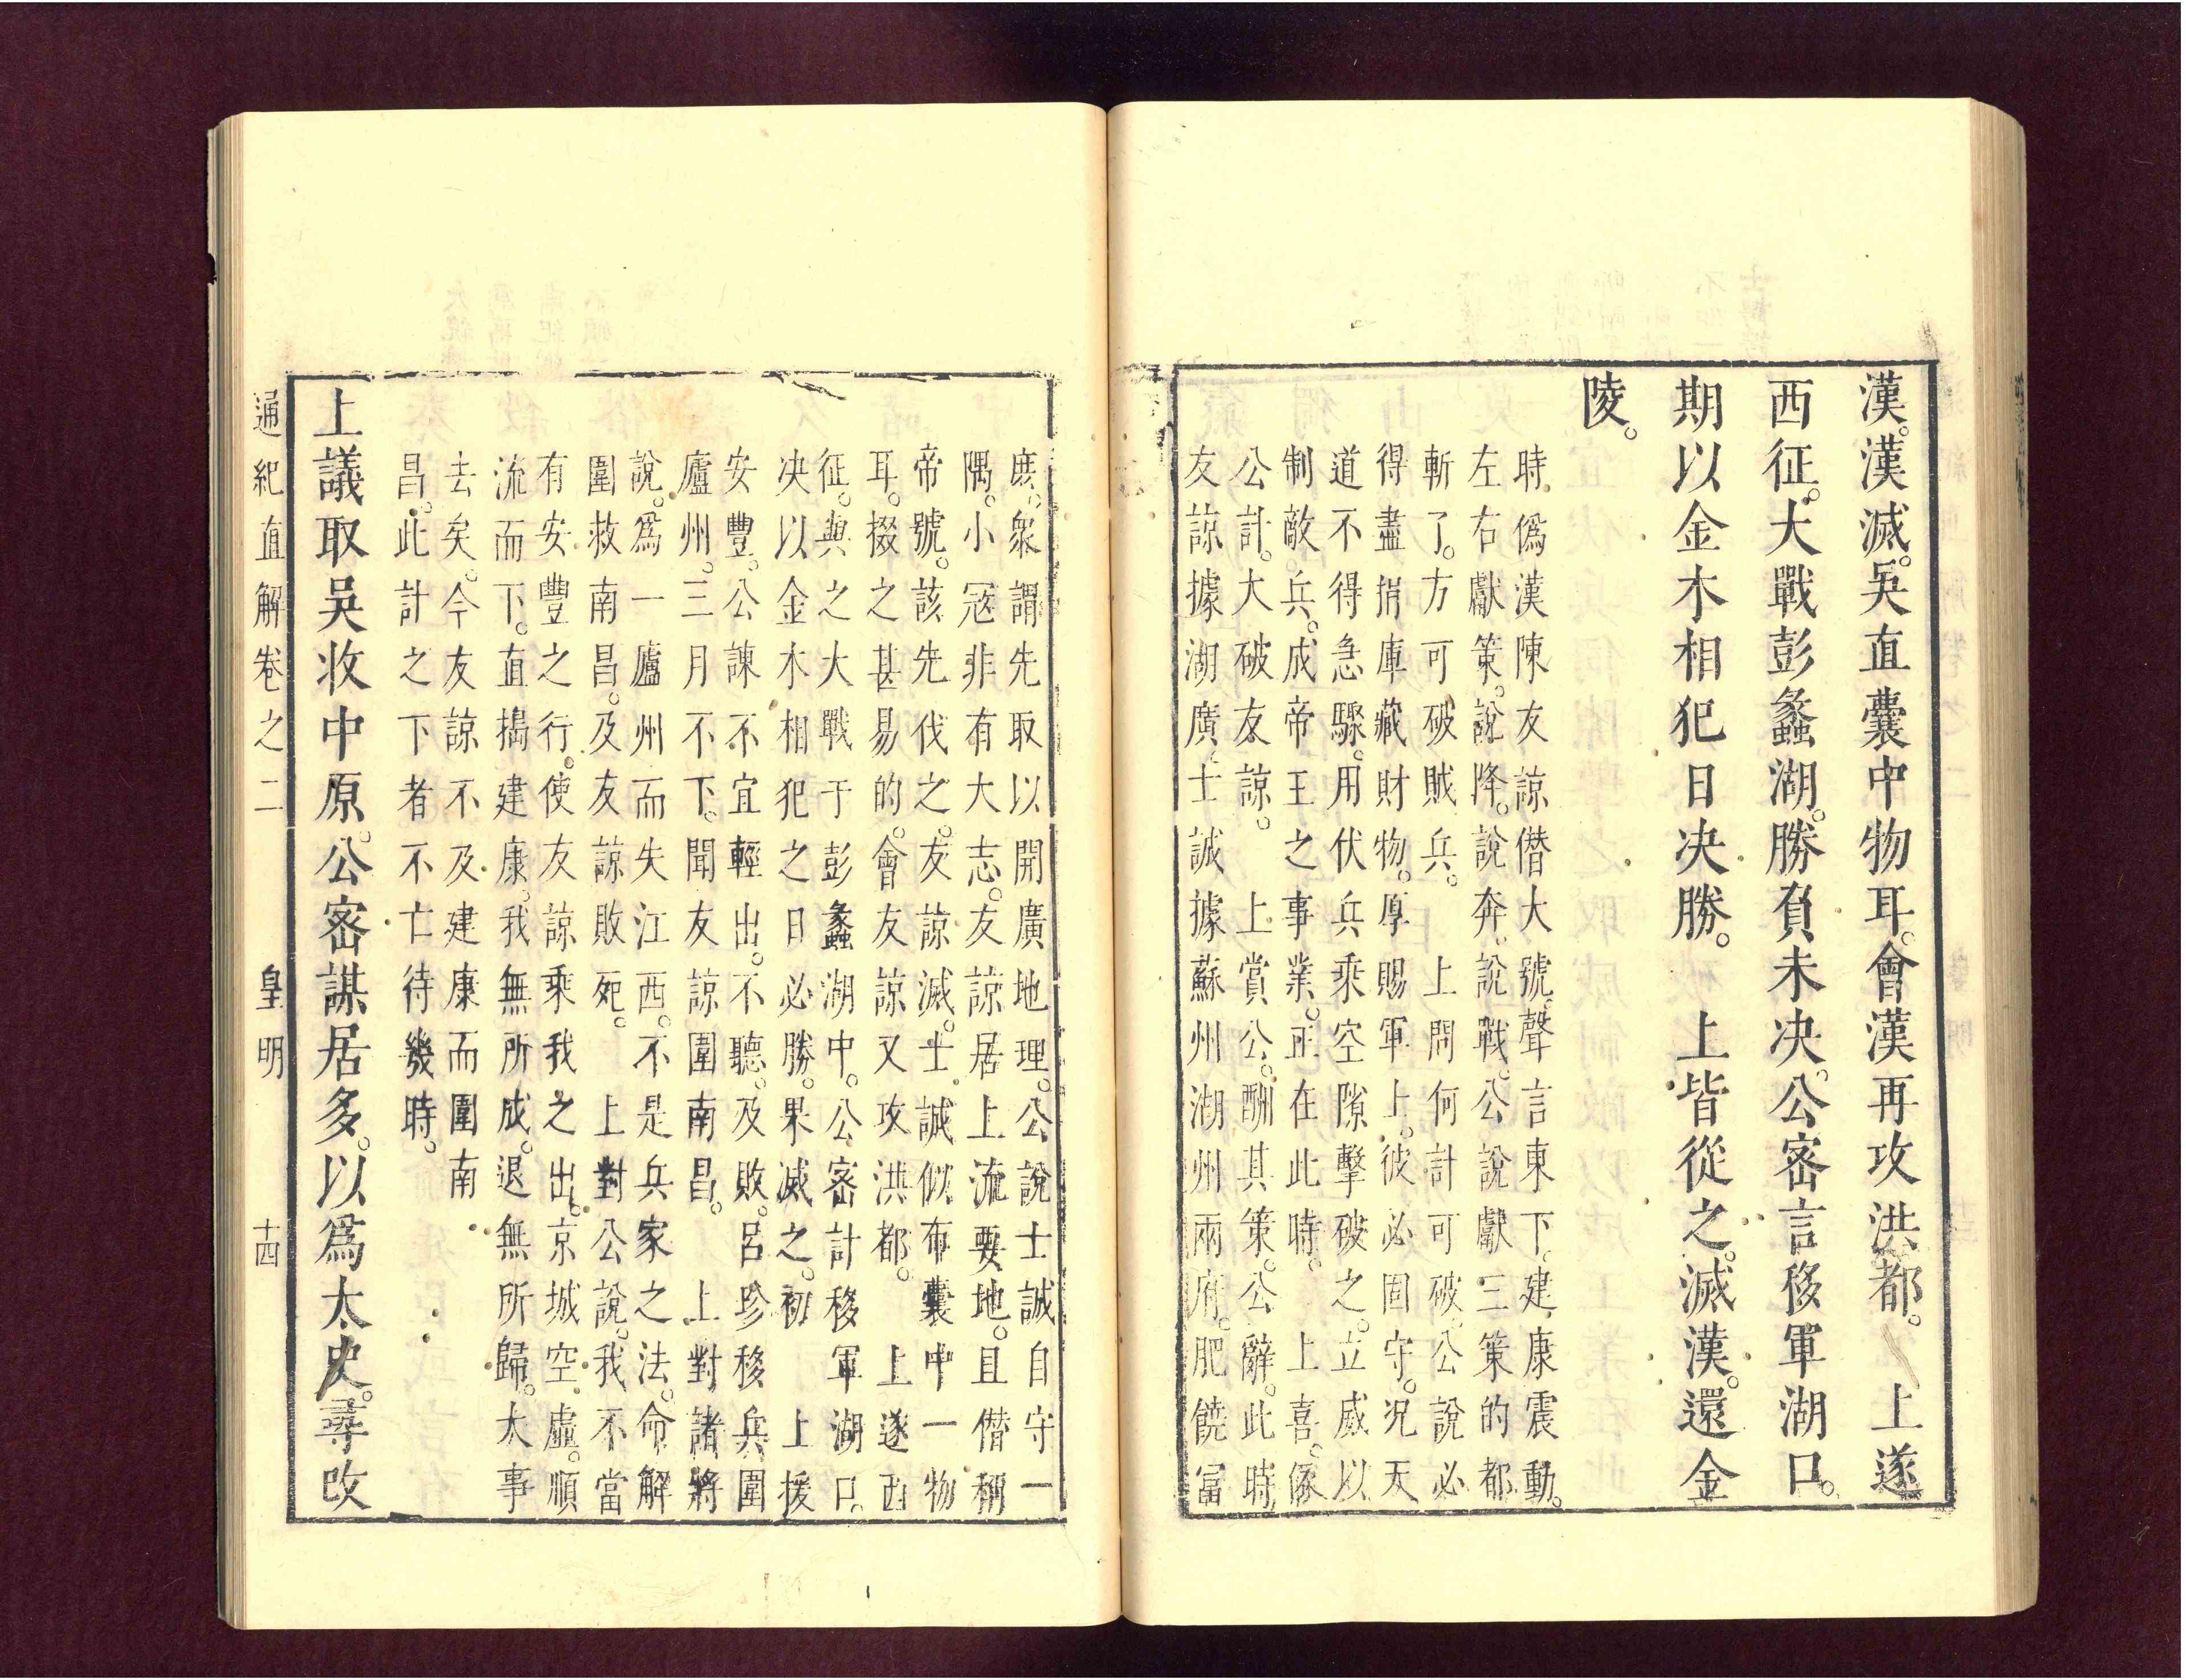 漢。漢滅。吳直囊中物耳。會漢再攻洪都。　上遂
西征。大戰彭蠡湖。勝負未决。公密言移軍湖口。
期以金木相犯日决勝。　上皆從之。滅漢。還金
陵。
時偽漢陳友諒僭大號。聲言東下。建康震動。
左右獻策。說降。說奔。說戰。公說獻三策的都
斬了。方可破賊兵。　上問何計可破。公說必
得盡捐庫藏財物。厚賜軍上。彼必固守。况天
道不得急驟。用伏兵乘空隙擊破之。立威以
制敵兵。成帝王之事業。正在此時。　上喜。係
公計。大破友諒。　上賞公。酬其策。公辭。此時
友諒據湖廣。士誠據蘇州湖州兩府。肥饒富
庶。衆謂先取以開廣地理。公說士誠自守一
隅。小寇非有大志。友諒居上流要地。且僭稱
帝號。該先伐之。友諒滅。士誠似布囊中一物
耳。掇之甚易的。會友諒又攻洪都。　上遂西
征。與之大戰于彭蠡湖中。公密計移軍湖口。
决以金木相犯之日必勝。果滅之。初　上援
安豐。公諫不宜輕出。不聽。及敗。呂珍移兵圍
廬州。三月不下。聞友諒圍南昌。　上對諸將
說。爲一廬州而失江西。不是兵家之法。命解
圍救南昌。及友諒敗死。　上對公說。我不當
有安豐之行。使友諒乘我之出。京城空虛。順
流而下。直搗建康。我無所成。退無所歸。大事
去矣。今友諒不及建康而圍南
昌。此計之下者。不亡待幾時。
上議取吳收中原。公密謀居多。以爲太史。尋改
通紀直解卷之二　皇明　十四